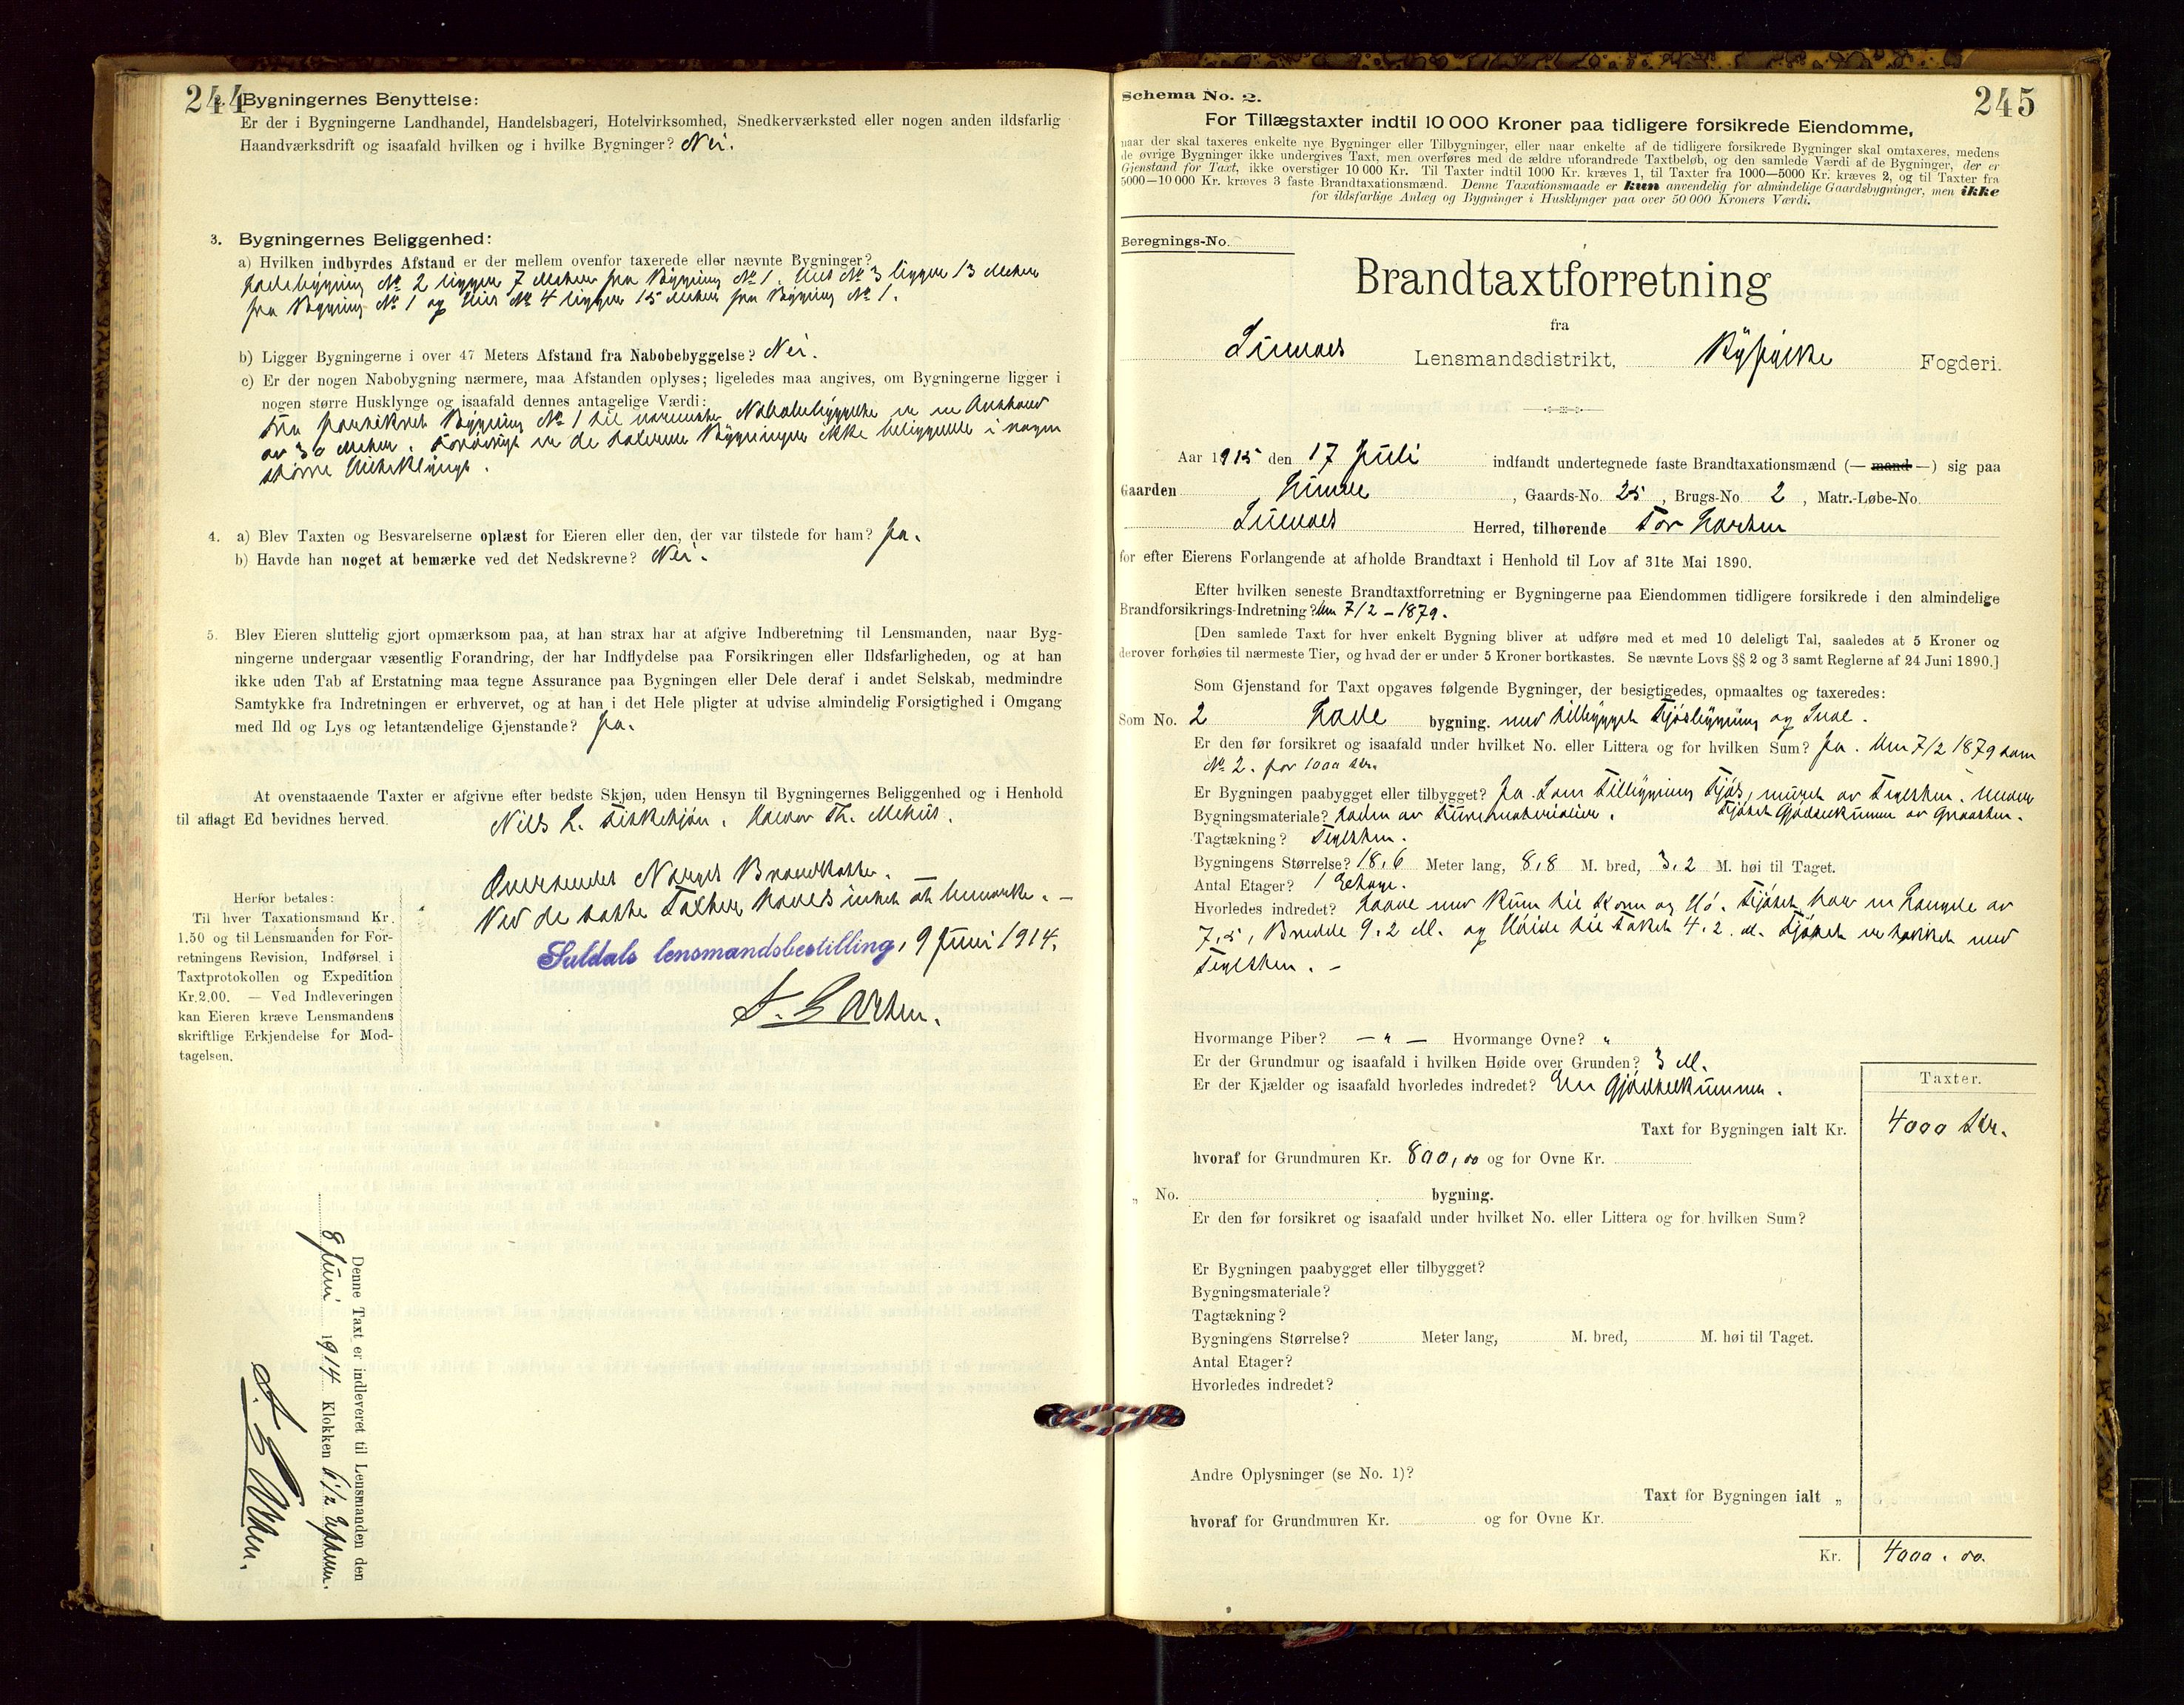 244
2. Bygningernes Benyttelse:
Er der i Bygningerne Landhandel, Handelsbageri, Hotelvirksomhed, Snedkerværksted eller nogen anden ildsfarlig
Haandværksdrift og isaafald hvilken og i hvilke Bygninger? Nei.
3. Bygningernes Beliggenhed:
a) Hvilken indbyrdes Afstand er der mellem ovenfor taxerede eller nævnte Bygninger?
Ladebygning № 2 ligger 7 Meter fra Bygning № 1. Hus № 3 ligger 13 Meter
fra Bygning № 1 og Hus № 4 ligger 15 Meter fra Bygning № 1.
b) Ligger Bygningerne i over 47 Meters Afstand fra Nabobebyggelse? Nei.
c) Er der nogen Nabobygning nærmere, maa Afstanden oplyses; ligeledes maa angives, om Bygningerne ligger i
nogen større Husklynge og isaafald dennes antagelige Værdi:
Fra forsikret Bygning № 1 til nærmeste Nabobebyggelse er en Avstand
av 30 Meter. Forøvrigt er de takserte Bygninger ikke beliggende i nogen
større Huseklynge.
4. a) Blev Taxten og Besvarelserne oplæst for Eieren eller den, der var tilstede for ham? Ja.
b) Havde han noget at bemærke ved det Nedskrevne? Nei.
5. Blev Eieren sluttelig gjort opmærksom paa, at han strax har at afgive Indberetning til Lensmanden, naar Byg-
ningerne undergaar væsentlig Forandring, der har Indflydelse paa Forsikringen eller Ildsfarligheden, og at han
ikke uden Tab af Erstatning maa tegne Assurance paa Bygningen eller Dele deraf i andet Selskab, medmindre
Samtykke fra Indretningen er erhvervet, og at han i det Hele pligter at udvise almindelig Forsigtighed i Omgang
med Ild og Lys og letantændelige Gjenstande? Ja.
At ovenstaaende Taxter er afgivne efter bedste Skjøn, uden Hensyn til Bygningernes Beliggenhed og i Henhold
til aflagt Ed bevidnes herved. Nils L. Fiskekjøn. Halvor Th. Mehus.
Oversendes Norges Brandkasse.
Ved de satte Takster haves intet at bemærke. —
Suldals lensmandsbestilling, 9 Juni 1914.
Herfor betales:
Til hver Taxationsmand Kr.
1.50 og til Lensmanden for For-
retningens Revision, Indførsel i
Taxtprotokollen og Expedition
Kr. 2.00. — Ved Indleveringen
kan Eieren kræve Lensmandens
skriftlige Erkjendelse for Mod-
tagelsen.
Denne Taxt er indleveret til Lensmanden den
8 Juni 1914 Klokken 6½ Efterm.
245
Schema No. 2.
For Tillægstaxter indtil 10 000 Kroner paa tidligere forsikrede Eiendomme,
naar der skal taxeres enkelte nye Bygninger eller Tilbygninger, eller naar enkelte af de tidligere forsikrede Bygninger skal omtaxeres, medens
de øvrige Bygninger ikke undergives Taxt, men overføres med de ældre uforandrede Taxtbeløb, og den samlede Værdi af de Bygninger, der er
Gjenstand for Taxt, ikke overstiger 10 000 Kr. Til Taxter indtil 1000 Kr. kræves 1, til Taxter fra 1000—5000 Kr. kræves 2, og til Taxter fra
5000—10 000 Kr. kræves 3 faste Brandtaxationsmænd. Denne Taxationsmaade er kun anvendelig for almindelige Gaardsbygninger, men ikke
for ildsfarlige Anlæg og Bygninger i Husklynger paa over 50 000 Kroners Værdi.
Beregnings-No.
Brandtaxtforretning
fra
Suldals Lensmandsdistrikt, Ryfylke Fogderi.
Aar 1915 den 17 Juli indfandt undertegnede faste Brandtaxationsmænd (— mand —) sig paa
Gaarden , Gaards-No. 25, Brugs-No. 2, Matr.-Løbe-No.
Suldals Herred, tilhørende Tor Larsen
for efter Eierens Forlangende at afholde Brandtaxt i Henhold til Lov af 31te Mai 1890.
Efter hvilken seneste Brandtaxtforretning er Bygningerne paa Eiendommen tidligere forsikrede i den almindelige
Brandforsikrings-Indretning? Um 7/2 – 1879.
[Den samlede Taxt for hver enkelt Bygning bliver at udføre med et med 10 deleligt Tal, saaledes at 5 Kroner og
derover forhøies til nærmeste Tier, og hvad der er under 5 Kroner bortkastes. Se nævnte Lovs §§ 2 og 3 samt Reglerne af 24 Juni 1890.]
Som Gjenstand for Taxt opgaves følgende Bygninger, der besigtigedes, opmaaltes og taxeredes:
Som No. 2 Lade bygning. med tilbygget Fjøsbygning og Sval.
Er den før forsikret og isaafald under hvilket No. eller Littera og for hvilken Sum? Ja. Um 7/2 1879 som
№ 2. for 1000 kr.
Er Bygningen paabygget eller tilbygget? Ja. Som Tilbygning Fjøs, muret av Teglsten. Under
Bygningsmateriale? Laden av Furumaterialier. Fjøset Gjødselkummer av Graasten.
Tagtækning? Teglsten.
Bygningens Størrelse? 18,6 Meter lang, 8,8 M. bred, 3,2 M. høi til Taget.
Antal Etager? 1 Etage.
Hvorledes indredet? Laave med Rum til Korn og Hö. Fjøset har en Længde av
7,5, Bredde 9.2 M. og Høide til Taket 4.2 M. Fjøset er takket med
Teglsten. –
Hvormange Piber? — " — Hvormange Ovne? "
Er der Grundmur og isaafald i hvilken Høide over Grunden? 3 M.
Er der Kjælder og isaafald hvorledes indredet? En Gjødselkumme.
Taxter.
Taxt for Bygningen ialt Kr. 4000 kr.
hvoraf for Grundmuren Kr. 800,00 og for Ovne Kr.
„ No. bygning.
Er den før forsikret og isaafald under hvilket No. eller Littera og for hvilken Sum?
Er Bygningen paabygget eller tilbygget?
Bygningsmateriale?
Tagtækning?
Bygningens Størrelse? Meter lang, M. bred, M. høi til Taget.
Antal Etager?
Hvorledes indredet?
Andre Oplysninger (se No. 1)?
Taxt for Bygningen ialt „
hvoraf for Grundmuren Kr. og for Ovne Kr.
Kr. 4000.00.